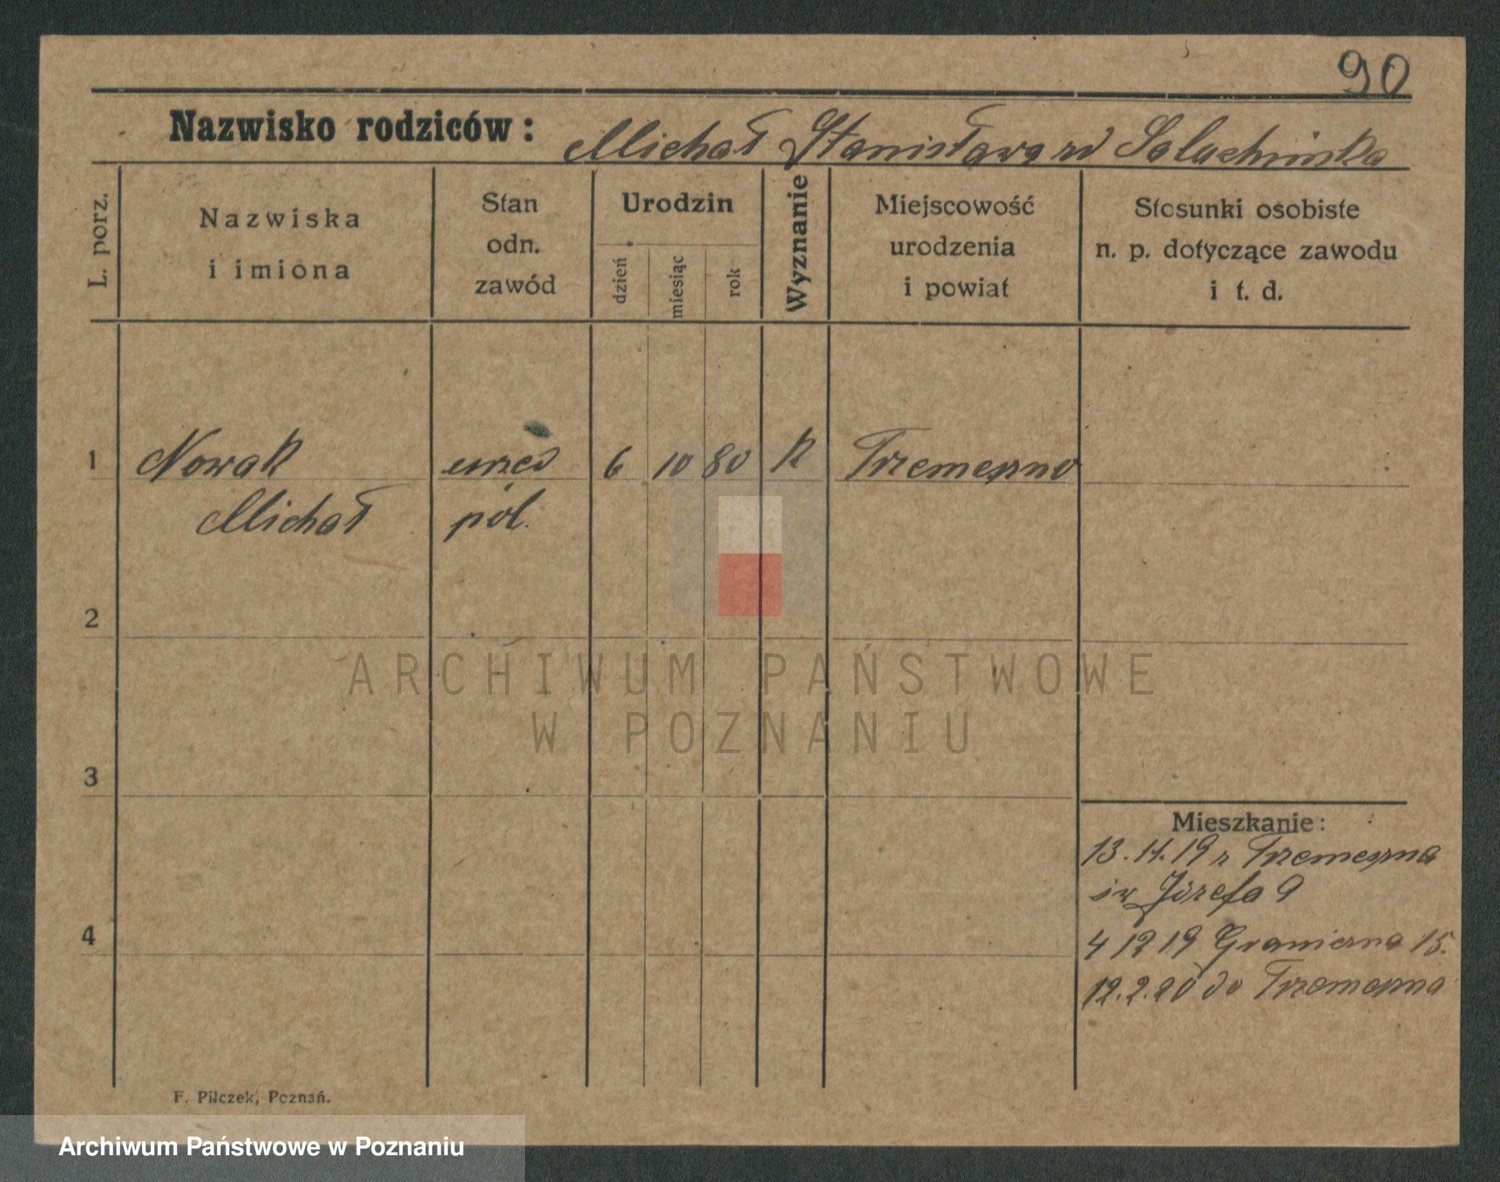 90
Nazwisko rodziców: Michał Stanisława zd Salachińska
L. porz.
Nazwiska
i imiona
Stan
odn.
zawód
Urodzin
dzień
miesiąc
rok
Wyznanie
Miejscowość
urodzenia
i powiat
Stosunki osobiste
n. p. dotyczące zawodu
i t. d.
1 Nowak urzęd 6 10 80 k Trzemeszno
Michał pol.
2
3
4
Mieszkanie:
13.11.19 z Trzemeszna
św Józefa 9
4 12 19 Graniczna 15.
12.2.20 do Trzemeszna
F. Pilczek, Poznań.
ARCHIWUM PAŃSTWOWE
W POZNANIU
Archiwum Państwowe w Poznaniu